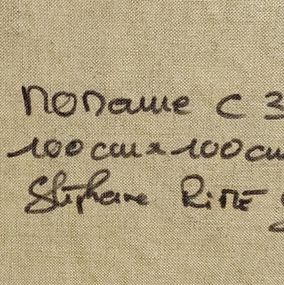 NOName C 3
100 cm x 100 cm
Stéphane RiTTÉ